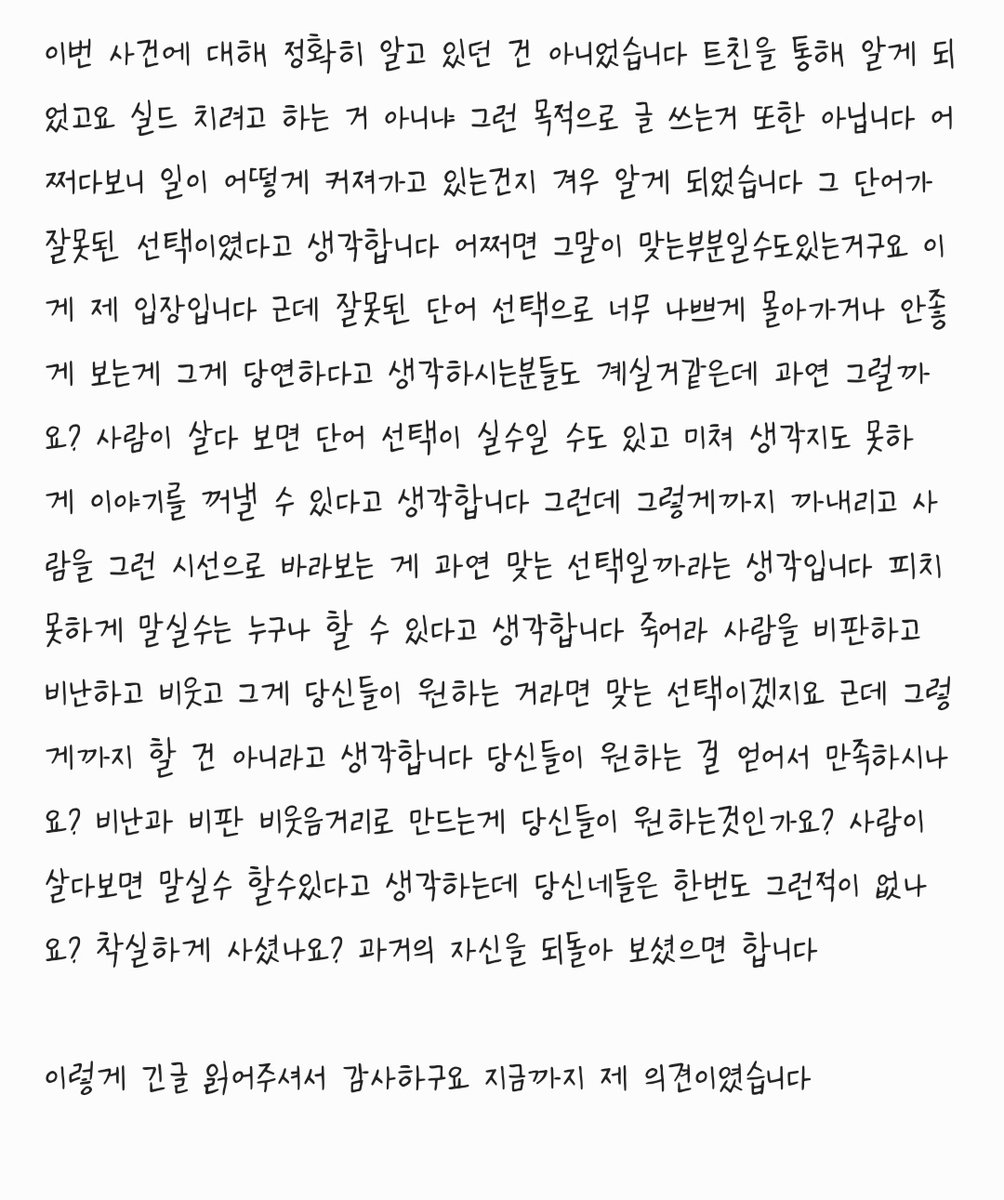 이번 사건에 대해 정확히 알고 있던 건 아니었습니다 트친을 통해 알게 되
었고요 실드 치려고 하는 거 아니냐 그런 목적으로 글 쓰는거 또한 아닙니다 어
쩌다보니 일이 어떻게 커져가고 있는건지 겨우 알게 되었습니다 그 단어가
잘못된 선택이였다고 생각합니다 어쩌면 그말이 맞는부분일수도있는거구요 이
게 제 입장입니다 근데 잘못된 단어 선택으로 너무 나쁘게 몰아가거나 안좋
게 보는게 그게 당연하다고 생각하시는분들도 계실거같은데 과연 그럴까
요? 사람이 살다 보면 단어 선택이 실수일 수도 있고 미쳐 생각지도 못하
게 이야기를 꺼낼 수 있다고 생각합니다 그런데 그렇게까지 까내리고 사
람을 그런 시선으로 바라보는 게 과연 맞는 선택일까라는 생각입니다 피치
못하게 말실수는 누구나 할 수 있다고 생각합니다 죽어라 사람을 비판하고
비난하고 비웃고 그게 당신들이 원하는 거라면 맞는 선택이겠지요 근데 그렇
게까지 할 건 아니라고 생각합니다 당신들이 원하는 걸 얻어서 만족하시나
요? 비난과 비판 비웃음거리로 만드는게 당신들이 원하는것인가요? 사람이
살다보면 말실수 할수있다고 생각하는데 당신네들은 한번도 그런적이 없나
요? 착실하게 사셨나요? 과거의 자신을 되돌아 보셨으면 합니다
이렇게 긴글 읽어주셔서 감사하구요 지금까지 제 의견이였습니다